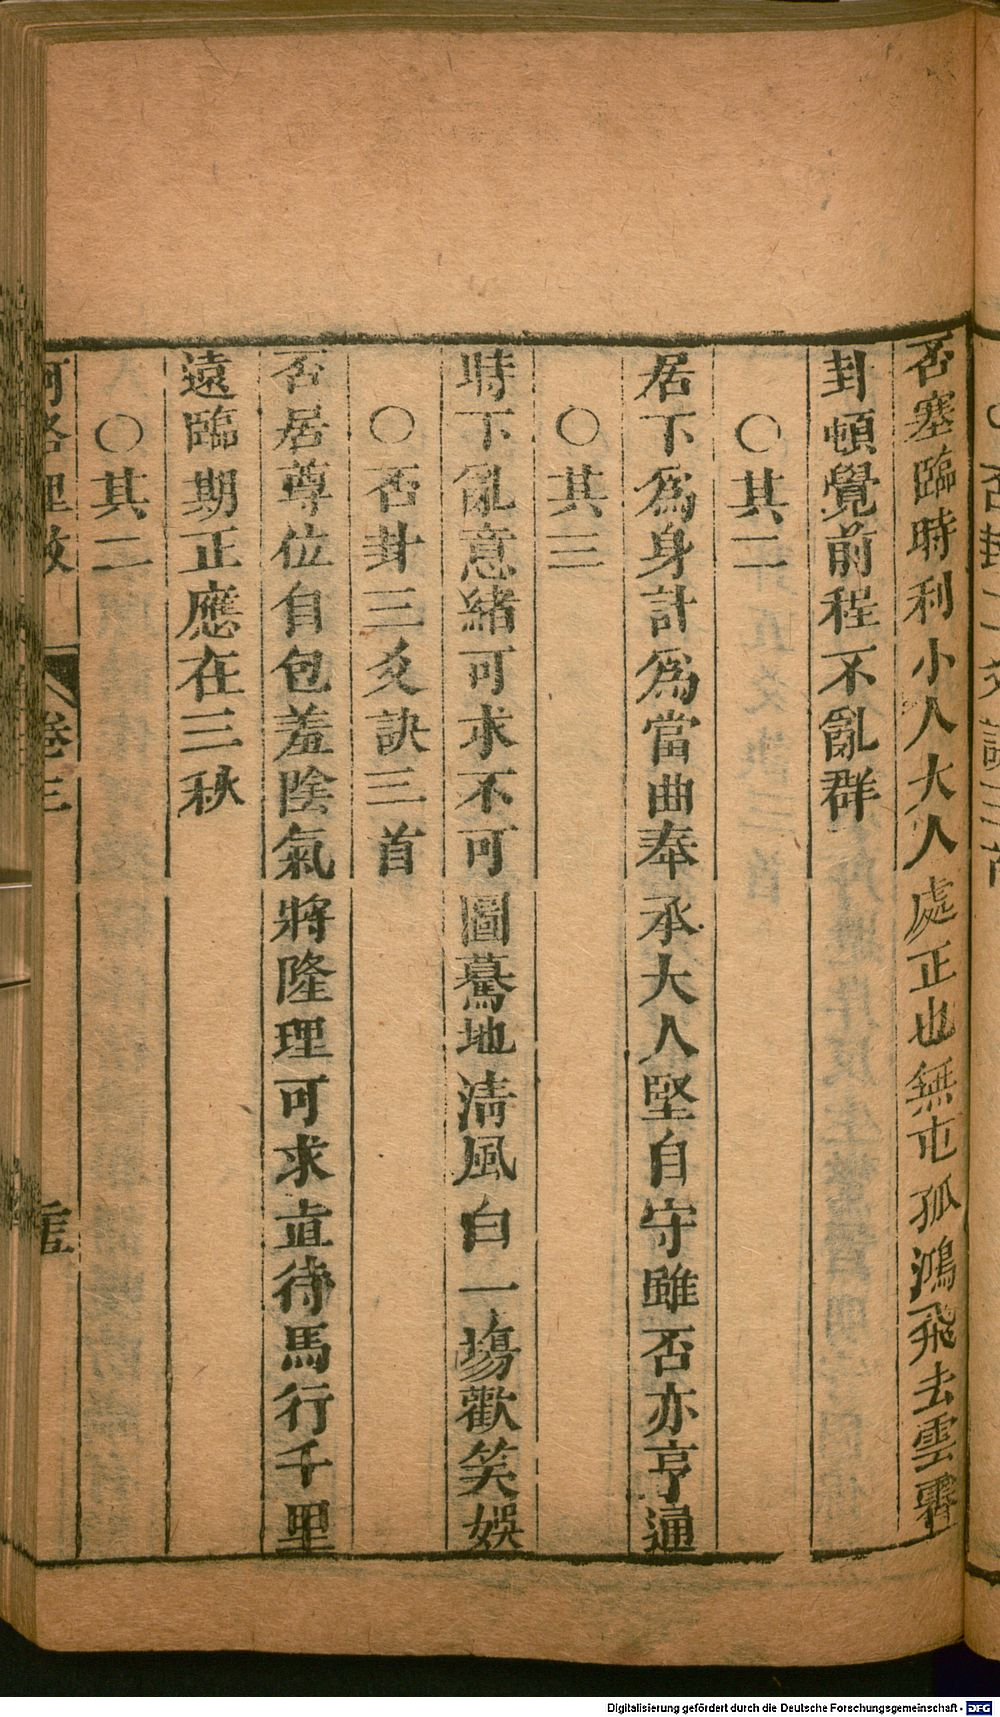 否卦二爻訣三首
否塞臨時利小人大人處正也無屯孤鴻飛去雲
封頓覺前程不亂群
○其二
居下爲身計爲當曲奉承大人堅自守雖否亦亨通
○其三
時下亂意緒可求不可圖驀地清風白一塲歡笑娛
○否卦三爻訣三首
否居尊位自包羞陰氣將隆理可求直待馬行千里
遠臨期正應在三秋
○其二
河洛理數 卷三
Digitalisierung gefördert durch die Deutsche Forschungsgemeinschaft - DFG